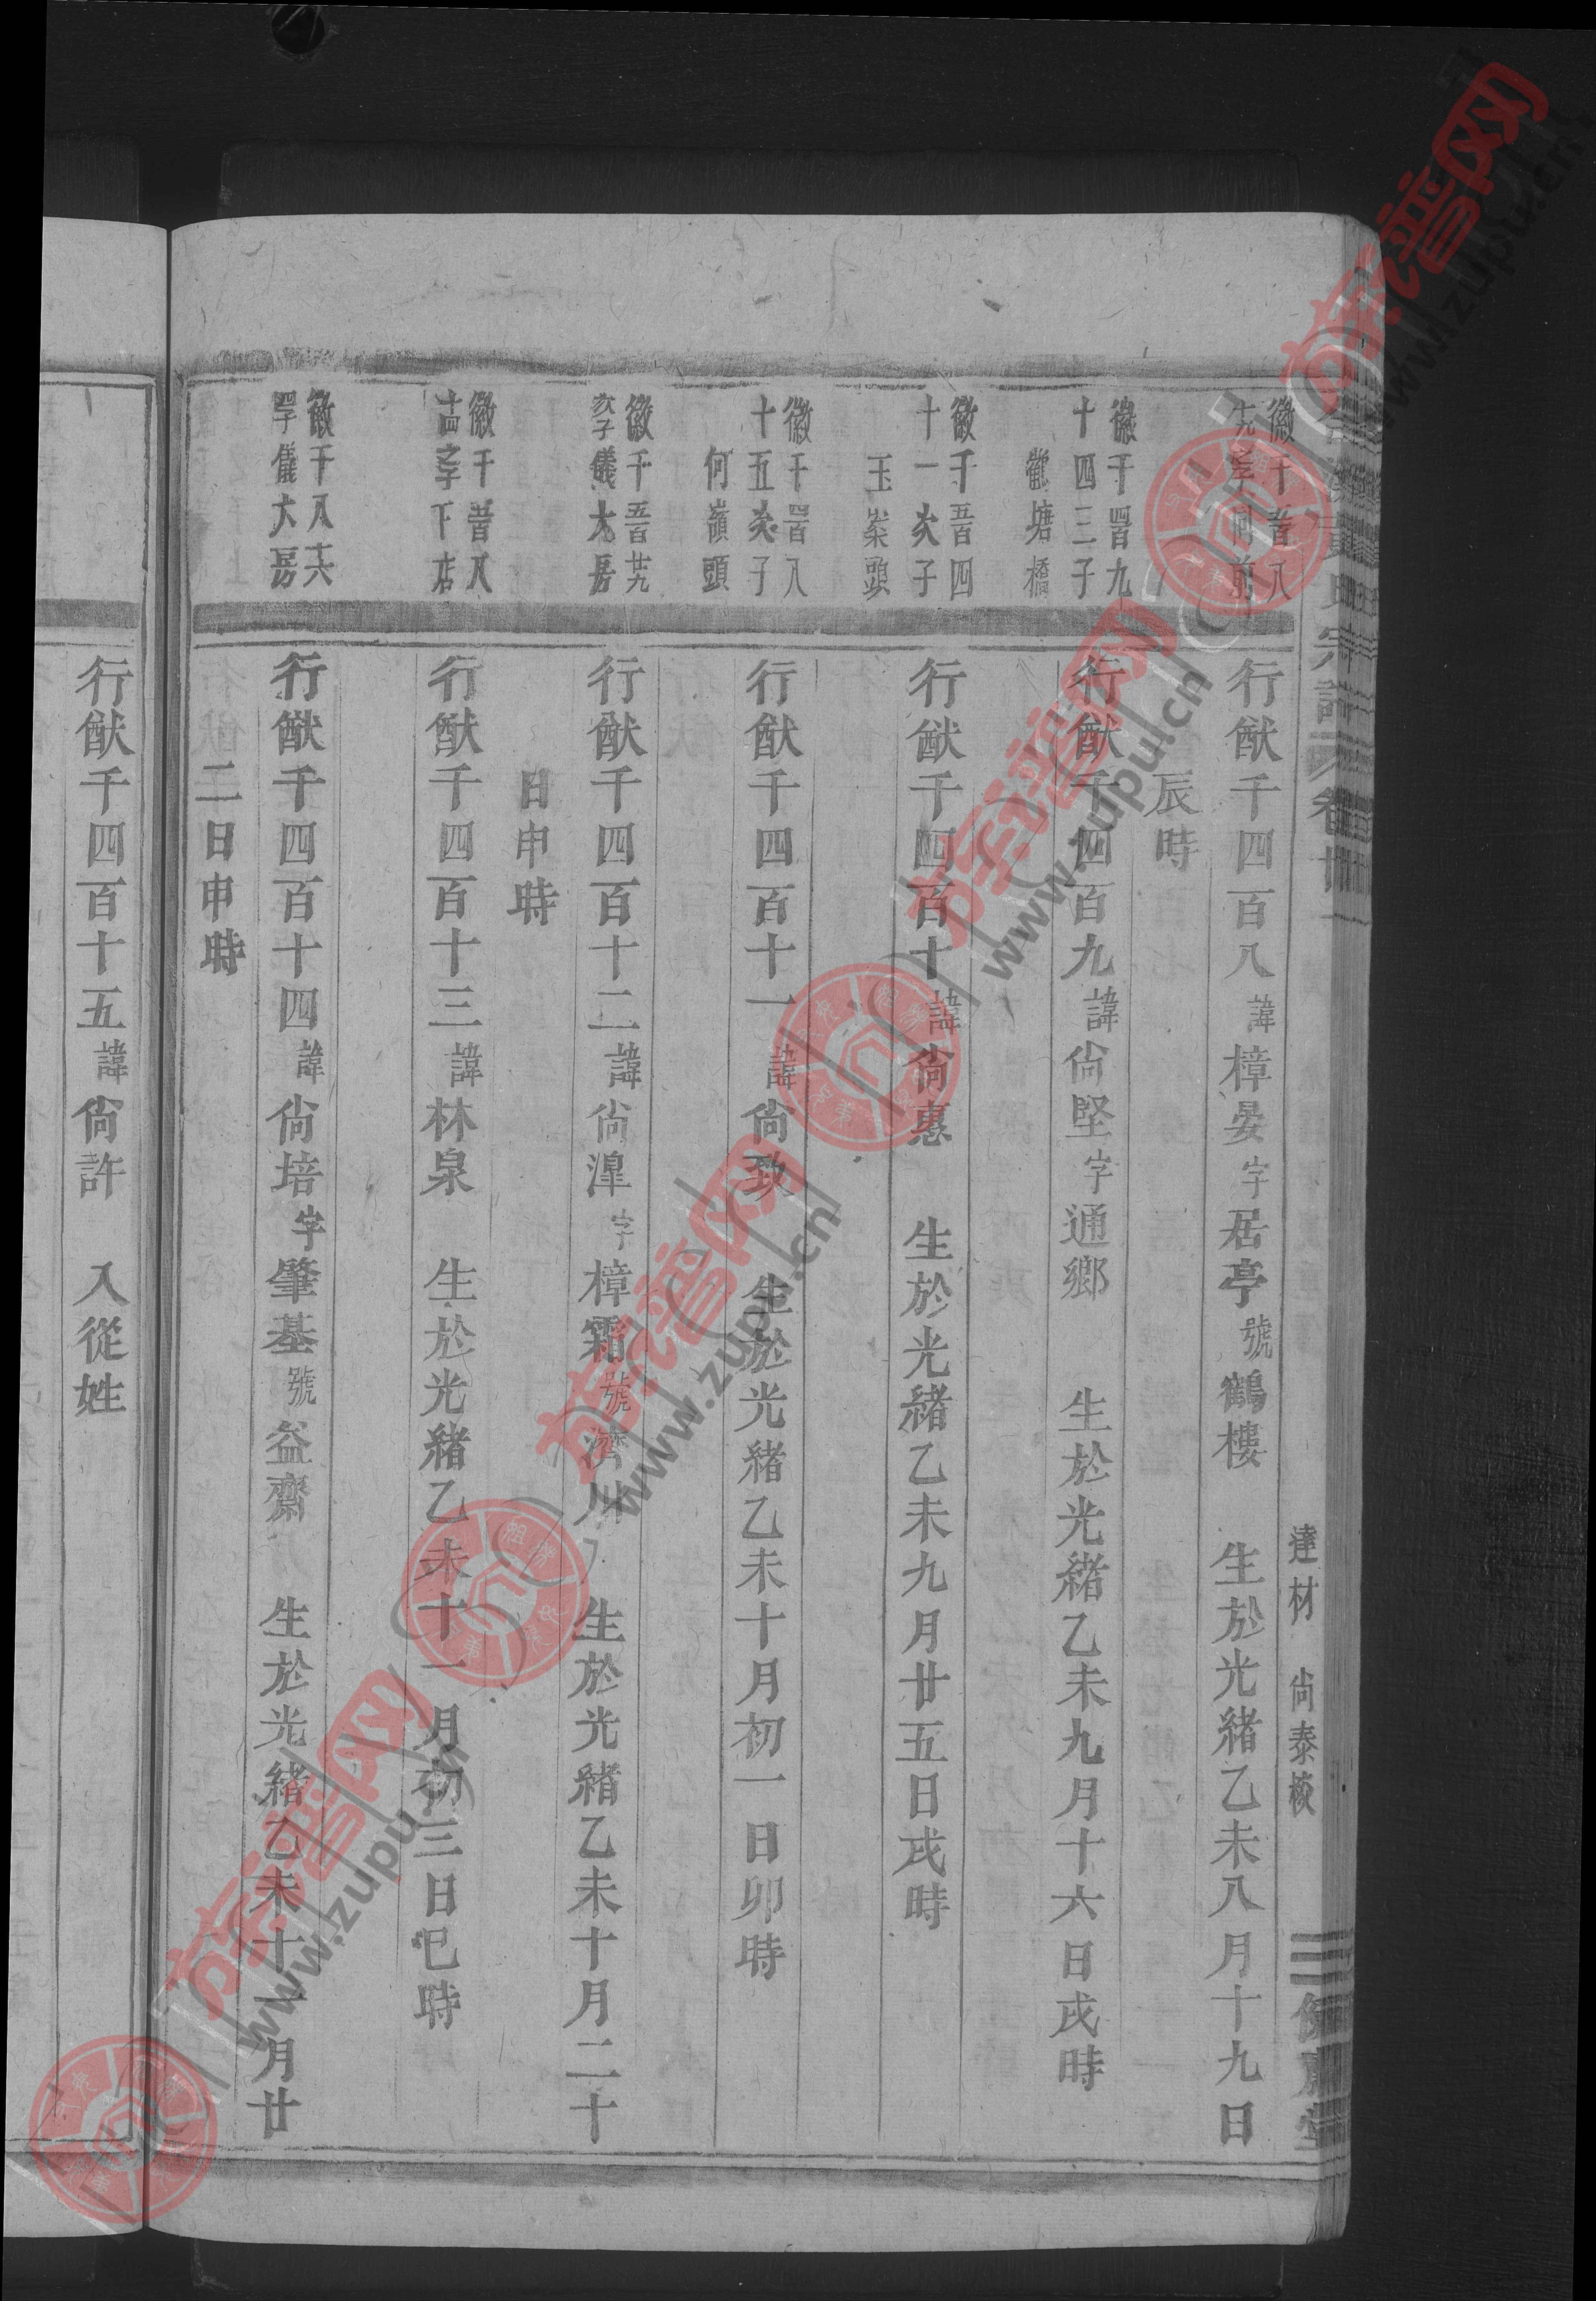 達材 尙泰校
徽千
徽千四百九
十四三子
觀塘橋
徽千五百四
十一次子
玉案頭
徽千四百八
十五次子
何嶺頭
徽千五百廿九
次子儀大房
徽千
下店
徽千八
四子儀大房
行猷千四百八諱樟晏字居亭號鶴樓 生於光緒乙未八月十九日
辰時
行猷千四百九諱尙堅字通鄉 生於光緒乙未九月十六日戌時
行猷千四百十諱尙惠 生於光緒乙未九月廿五日戌時
行猷千四百十一諱尙玖 生於光緒乙未十月初一日卯時
行猷千四百十二諱尙湟字樟霜號濟川 生於光緒乙未十月二十
日申時
行猷千四百十三諱林泉 生於光緒乙未十一月初三日巳時
行猷千四百十四諱尙培字肇基號益齋 生於光緒乙未十一月廿
二日申時
行猷千四百十五諱尙許 入從姓
族谱网
www.zupu.cn